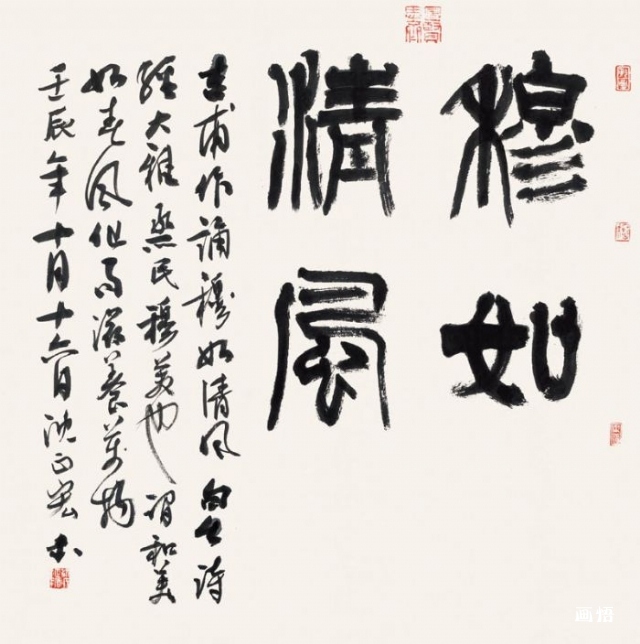 穆如
清風
吉甫作誦穆如清風 句出詩
經大雅烝民穆美也 謂和美
如春風化雨滋養萬物
壬辰年十月十六日沈正宏書
画悟